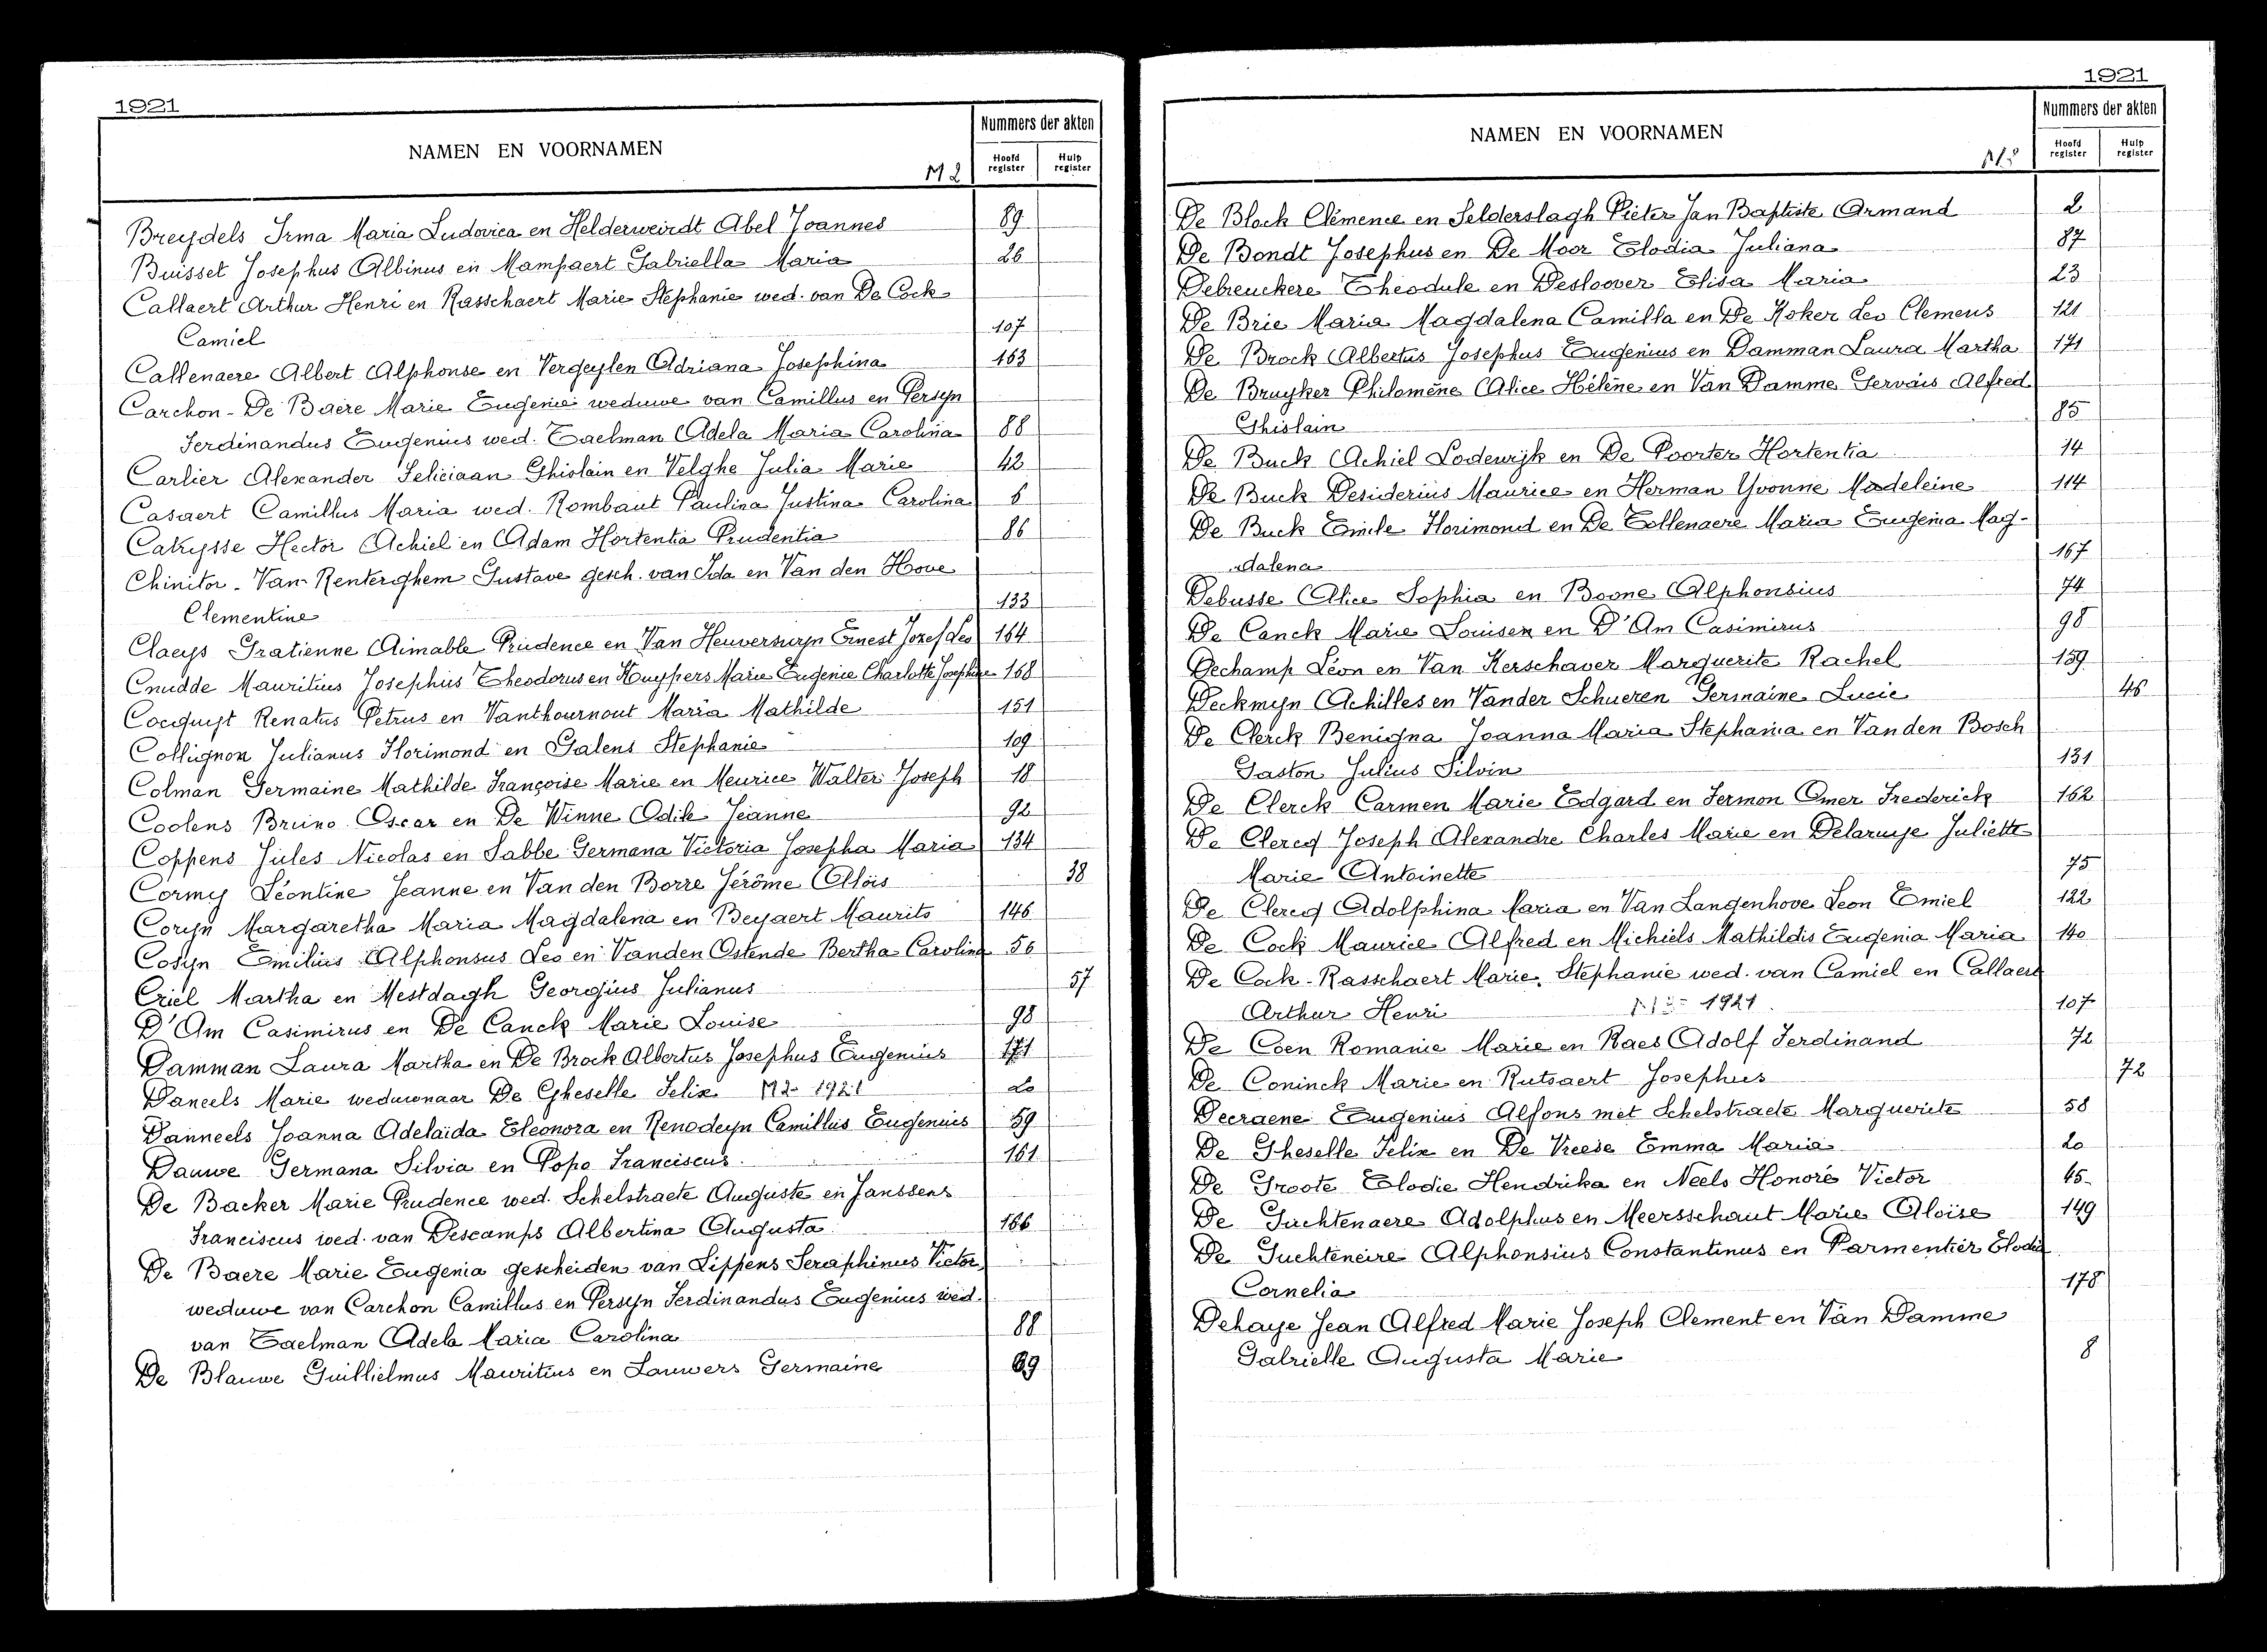 1921
NAMEN EN VOORNAMEN
M 2
Nummers der akten
Hoofd register
Hulp register
Breydels Irma Maria Ludovica en Helderweirdt Abel Joannes 89
Buisset Josephus Albinus en Mampaert Gabriella Maria 26
Callaert Arthur Henri en Rasschaert Marie Stephanie wed. van De Cock
Camiel 107
Callenaere Albert Alphonse en Vergeylen Adriana Josephina 163
Carchon-De Baere Marie Eugenie weduwe van Camillus en Persyn
Ferdinandus Eugenius wed. Taelman Adela Maria Carolina 88
Carlier Alexander Feliciaan Ghislain en Velghe Julia Marie 42
Casaert Camillus Maria wed. Rombaut Paulina Justina Carolina 6
Catrysse Hector Achiel en Adam Hortentia Prudentia 86
Chinitor-Van Renterghem Gustave gesch. van Ida en Van den Hove
Clementine 133
Claeys Gratienne Aimable Prudence en Van Heuverswyn Ernest Jozef Leo 164
Cnudde Mauritius Josephus Theodorus en Kuypers Marie Eugenie Charlotte Josephine 168
Cocquyt Renatus Petrus en Vanthournout Maria Mathilde 151
Collignon Julianus Florimond en Galens Stephanie 109
Colman Germaine Mathilde Françoise Marie en Meurice Walter Joseph 18
Coolens Bruno Oscar en De Winne Odile Jeanne 92
Coppens Jules Nicolas en Sabbe Germana Victoria Josepha Maria 134
Cormy Léontine Jeanne en Van den Borre Jérôme Aloïs 38
Coryn Margaretha Maria Magdalena en Beyaert Maurits 146
Cosyn Emilius Alphonsus Leo en Vanden Ostende Bertha Carolina 56
Criel Martha en Mestdagh Georgius Julianus 57
D'Am Casimirus en De Canck Marie Louise 98
Damman Laura Martha en De Brock Albertus Josephus Eugenius 171
Daneels Marie weduwnaar De Gheselle Felix M2- 1921 20
Danneels Joanna Adelaïda Eleonora en Renodeyn Camillus Eugenius 59
Dauwe Germana Silvia en Popo Franciscus 161
De Backer Marie Prudence wed. Schelstraete Auguste en Janssens
Franciscus wed. van Descamps Albertina Augusta 166
De Baere Marie Eugenia gescheiden van Lippens Seraphinus Victor,
weduwe van Carchon Camillus en Persyn Ferdinandus Eugenius wed.
van Taelman Adela Maria Carolina 88
De Blauwe Guillielmus Mauritius en Lauwers Germaine 69
1921
NAMEN EN VOORNAMEN
Nummers der akten
Hoofd register
Hulp register
De Block Clémence en Selderslagh Pieter Jan Baptiste Armand 2
De Bondt Josephus en De Moor Elodia Juliana 87
Debreuckere Theodule en Desloover Elisa Maria 23
De Brie Maria Magdalena Camilla en De Koker Leo Clemens 121
De Brock Albertus Josephus Eugenius en Damman Laura Martha 171
De Bruyker Philomène Alice Hélène en Van Damme Gervais Alfred
Ghislain 85
De Buck Achiel Lodewijk en De Poorter Hortentia 14
De Buck Desiderius Maurice en Herman Yvonne Madeleine 114
De Buck Emile Florimond en De Tollenaere Maria Eugenia Mag-
dalena 167
Debusse Alice Sophia en Boone Alphonsius 74
De Canck Marie Louisen en D'Am Casimirus 98
Dechamp Léon en Van Kerschaver Marguerite Rachel 159
Deckmyn Achilles en Vander Schueren Germaine Lucie 46
De Clerck Benigna Joanna Maria Stephania en Vanden Bosch
Gaston Julius Silvin 131
De Clerck Carmen Marie Edgard en Fermon Omer Frederick 162
De Clercq Joseph Alexandre Charles Marie en Delaruye Juliette
Marie Antoinette 75
De Clercq Adolphina Maria en Van Langenhove Leon Emiel 122
De Cock Maurice Alfred en Michiels Mathildis Eugenia Maria 140
De Cock-Rasschaert Marie, Stephanie wed. van Camiel en Callaert
Arthur Henri 1921. 107
De Coen Romanie Marie en Raes Adolf Ferdinand 72
De Coninck Marie en Rutsaert Josephus 72
Decraene Eugenius Alfons met Schelstraete Marguerite 58
De Gheselle Felix en De Vreese Emma Maria 20
De Groote Elodie Hendrika en Neels Honoré Victor 45
De Guchtenaere Adolphus en Meersschaut Marie Aloïse 149
De Guchteneire Alphonsius Constantinus en Parmentier Elodie
Cornelia 178
Dehaye Jean Alfred Marie Joseph Clement en Van Damme
Gabrielle Augusta Marie 8